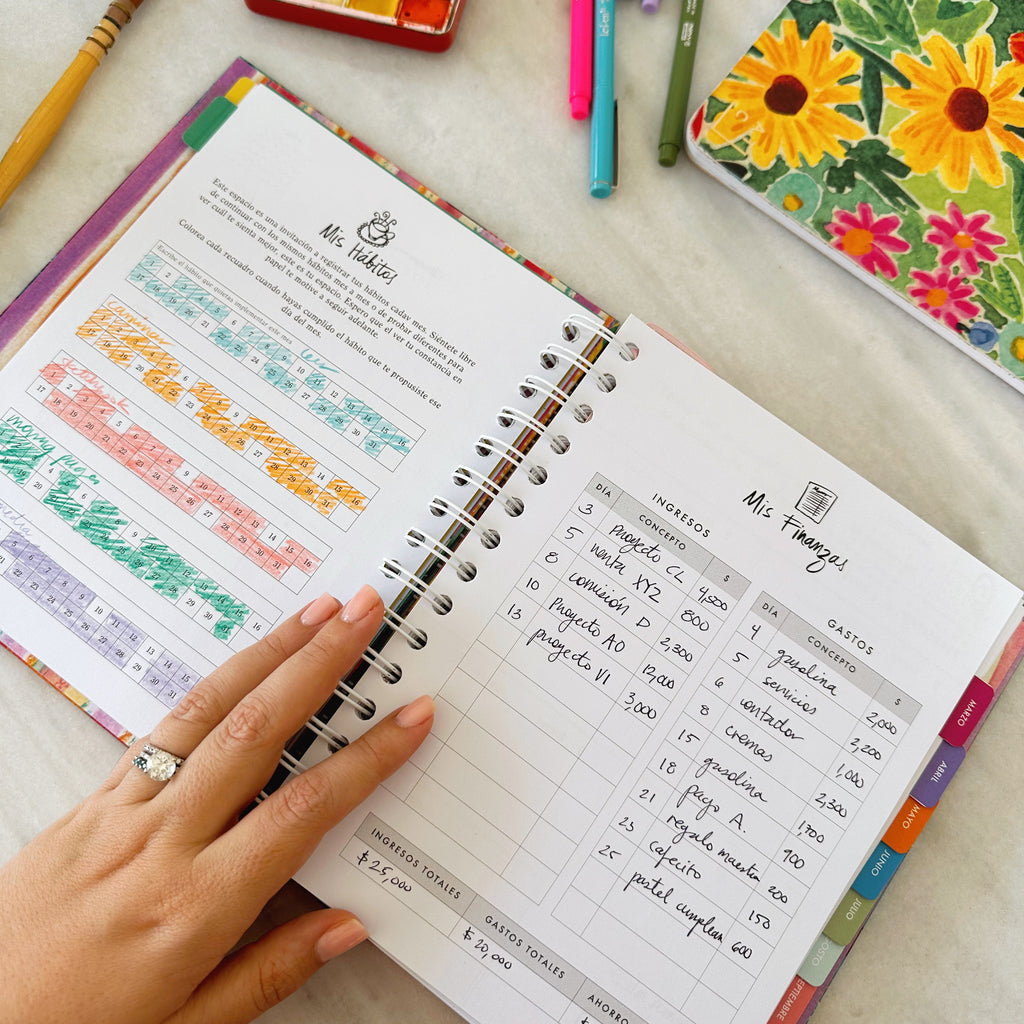 Mis Hábitos
Este espacio es una invitación a registrar tus hábitos cadav mes. Siéntete libre
de continuar con los mismos hábitos mes a mes o de probar diferentes para
ver cuál te sienta mejor, este es tu espacio. Espero que el ver tu constancia en
papel te motive a seguir adelante.
Colorea cada recuadro cuando hayas cumplido el hábito que te propusiste ese
día del mes.
Escribe el hábito que quieras implementar este mes leer
caminar
morning pages
Mis Finanzas
INGRESOS
DIA CONCEPTO $
3 Proyecto CL 4,500
5 venta XYZ 800
8 comisión D 2,300
10 Proyecto AO 12,000
13 proyecto VI 3,000
GASTOS
DIA CONCEPTO $
4 gasolina 2,000
5 servicios 2,200
6 contador 1,000
8 cremas 2,300
15 gasolina 1,700
18 pago A. 900
21 regalo maestra 200
23 cafecito 150
25 pastel cumpleañ 600
INGRESOS TOTALES
$ 25,000
GASTOS TOTALES
$ 20,000
AHORRO
MARZO
ABRIL
MAYO
JUNIO
JULIO
AGOSTO
SEPTIEMBRE